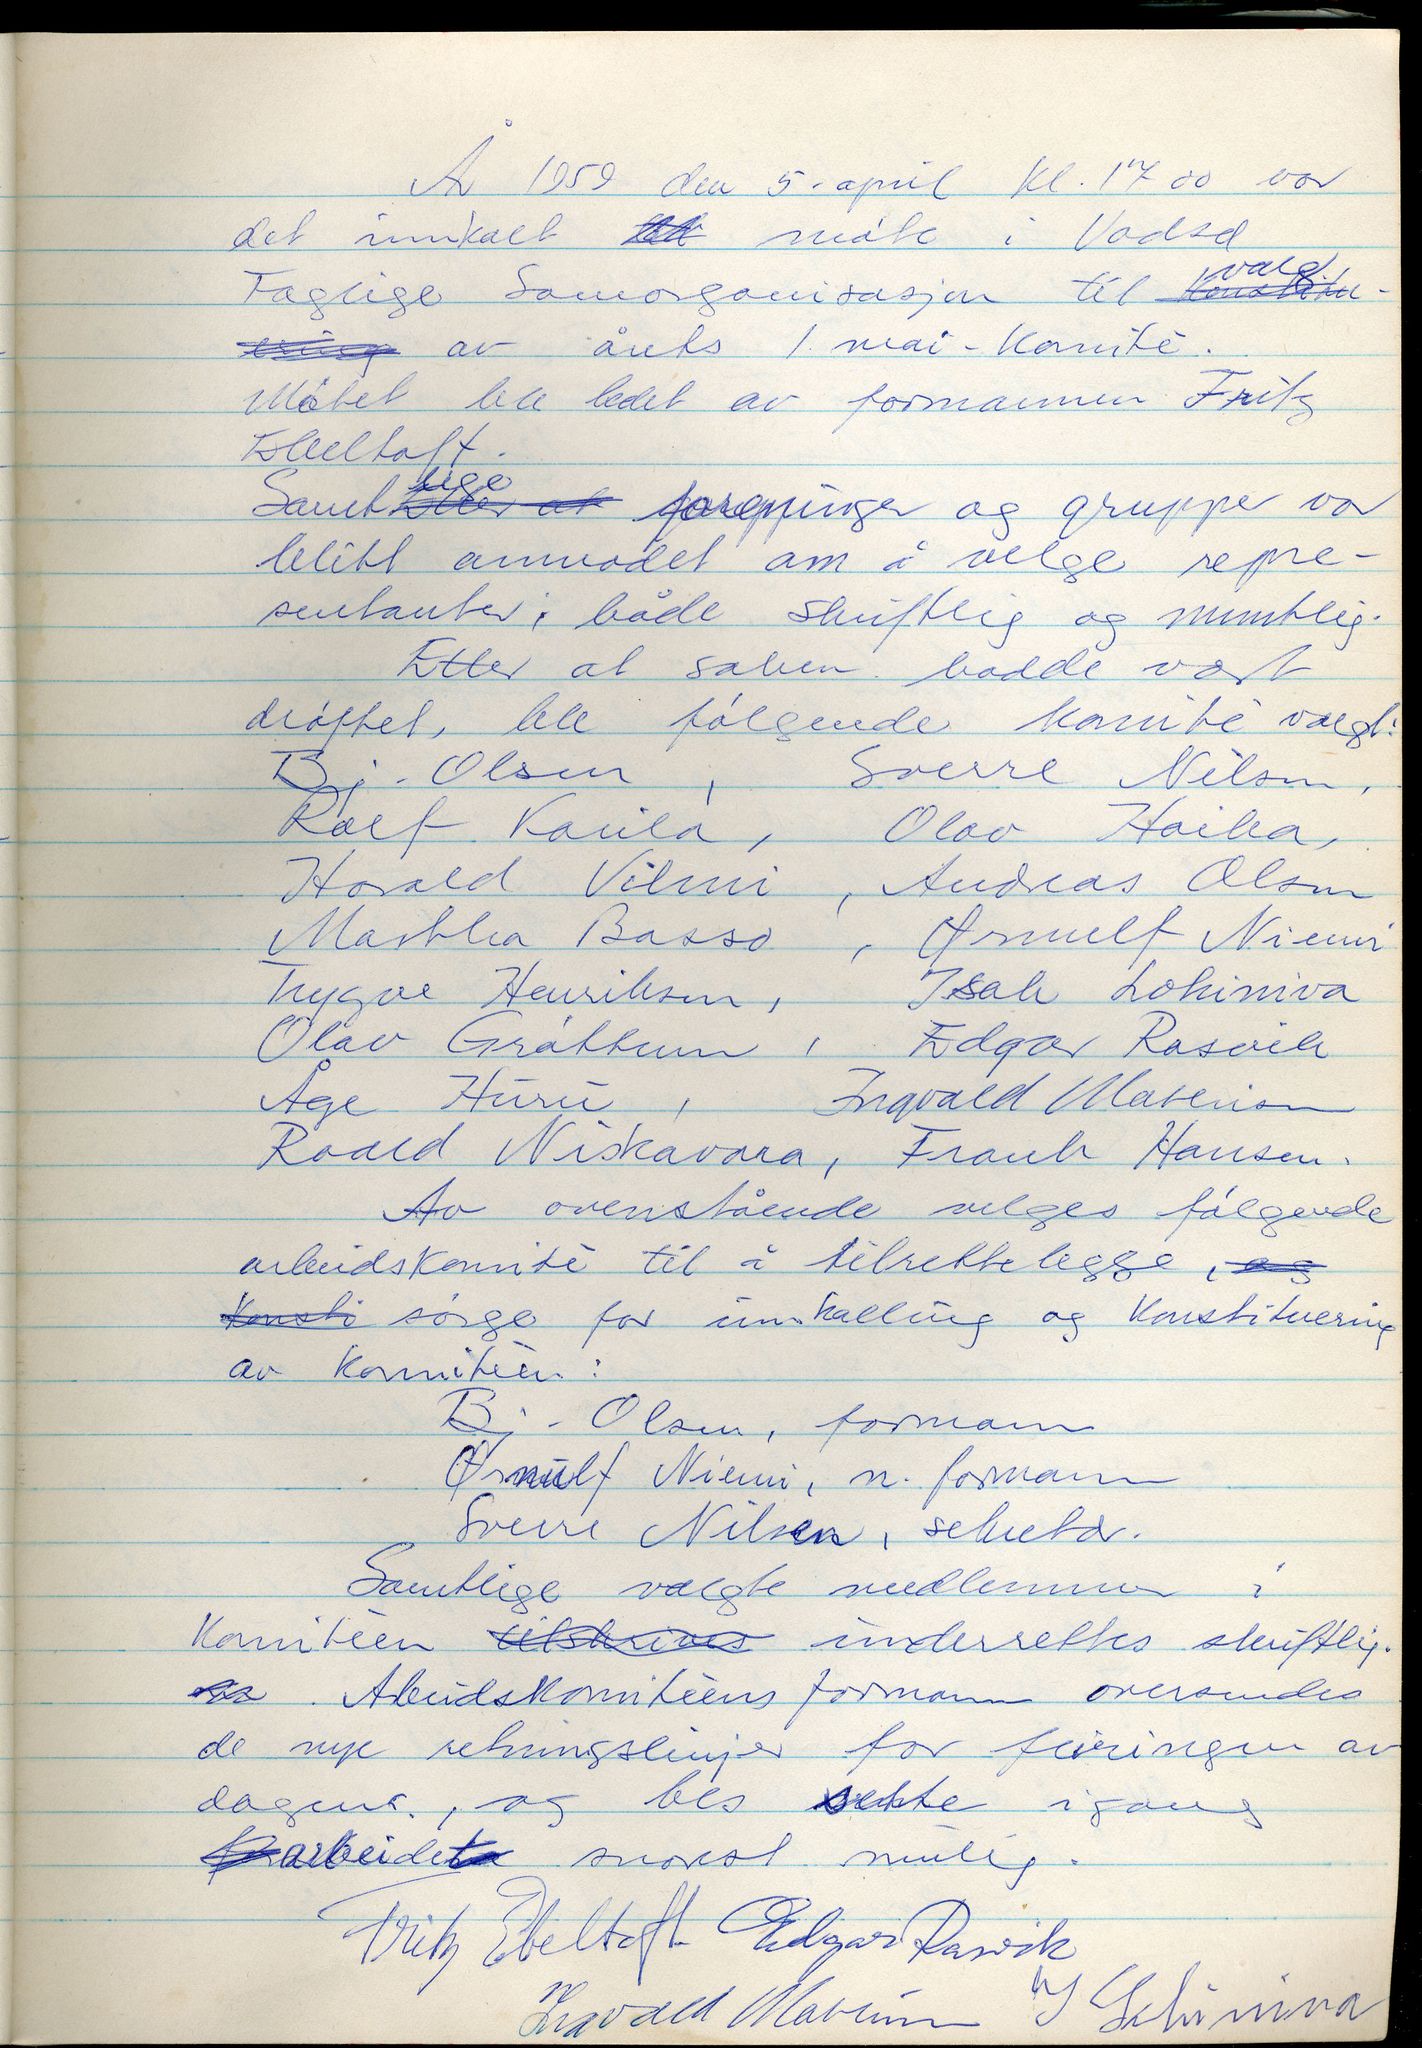 År 1959 den 5. april kl. 17 00 var
det innkalt møte i Vadsø
Faglige Samorganisasjon til valg
av årets 1 mai-komité.
Møtet ble ledet av formannen Fritz
Ebeltoft.
Samtlige foreninger og grupper var
blitt anmodet om å velge repre-
sentanter, både skriftlig og muntlig.
Etter at saken hadde vært
drøftet, ble følgende komité valgt:
Bj. Olsen, Sverre Nilsen,
Rolf Karila, Olav Haika,
Harald Vilmi, Andreas Olsen
Martha Basso, Ørnulf Niemi
Trygve Henriksen, Isak Lokiniva
Olav Grøttum, Edgar Rasvik
Åge Huru, Ingvald Mathisen
Roald Niskavara, Frank Hansen.
Av ovenstående velges følgende
arbeidskomité til å tilrettelegge, og
Konsti sørge for innkalling og konstituering
av komitéen:
Bj. Olsen, formann
Ørnulf Niemi, n. formann
Sverre Nilsen, sekretær.
Samtlige valgte medlemmer i
komitéen tilskrives underrettes skriftlig.
Arbeidskomitéens formann oversendes
de nye retningslinjer for feiringen av
dagen, og bes sette igang
arbeidet snarest mulig.
Fritz Ebeltoft Edgar Rasvik
Ingvald Mathisen I Lokiniva